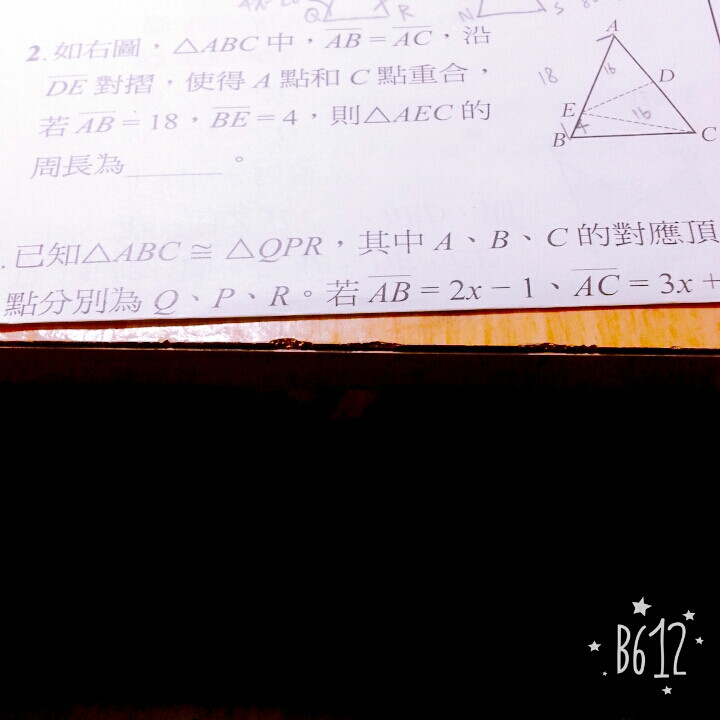 Q R N S
2. 如右圖，△ABC 中，AB = AC，沿
DE 對摺，使得 A 點和 C 點重合，
若 AB = 18，BE = 4，則△AEC 的
周長為______。
A
18
16
D
E
16
4
B
C
. 已知△ABC ≅ △QPR，其中 A、B、C 的對應頂
點分別為 Q、P、R。若 AB = 2x − 1、AC = 3x +
B612